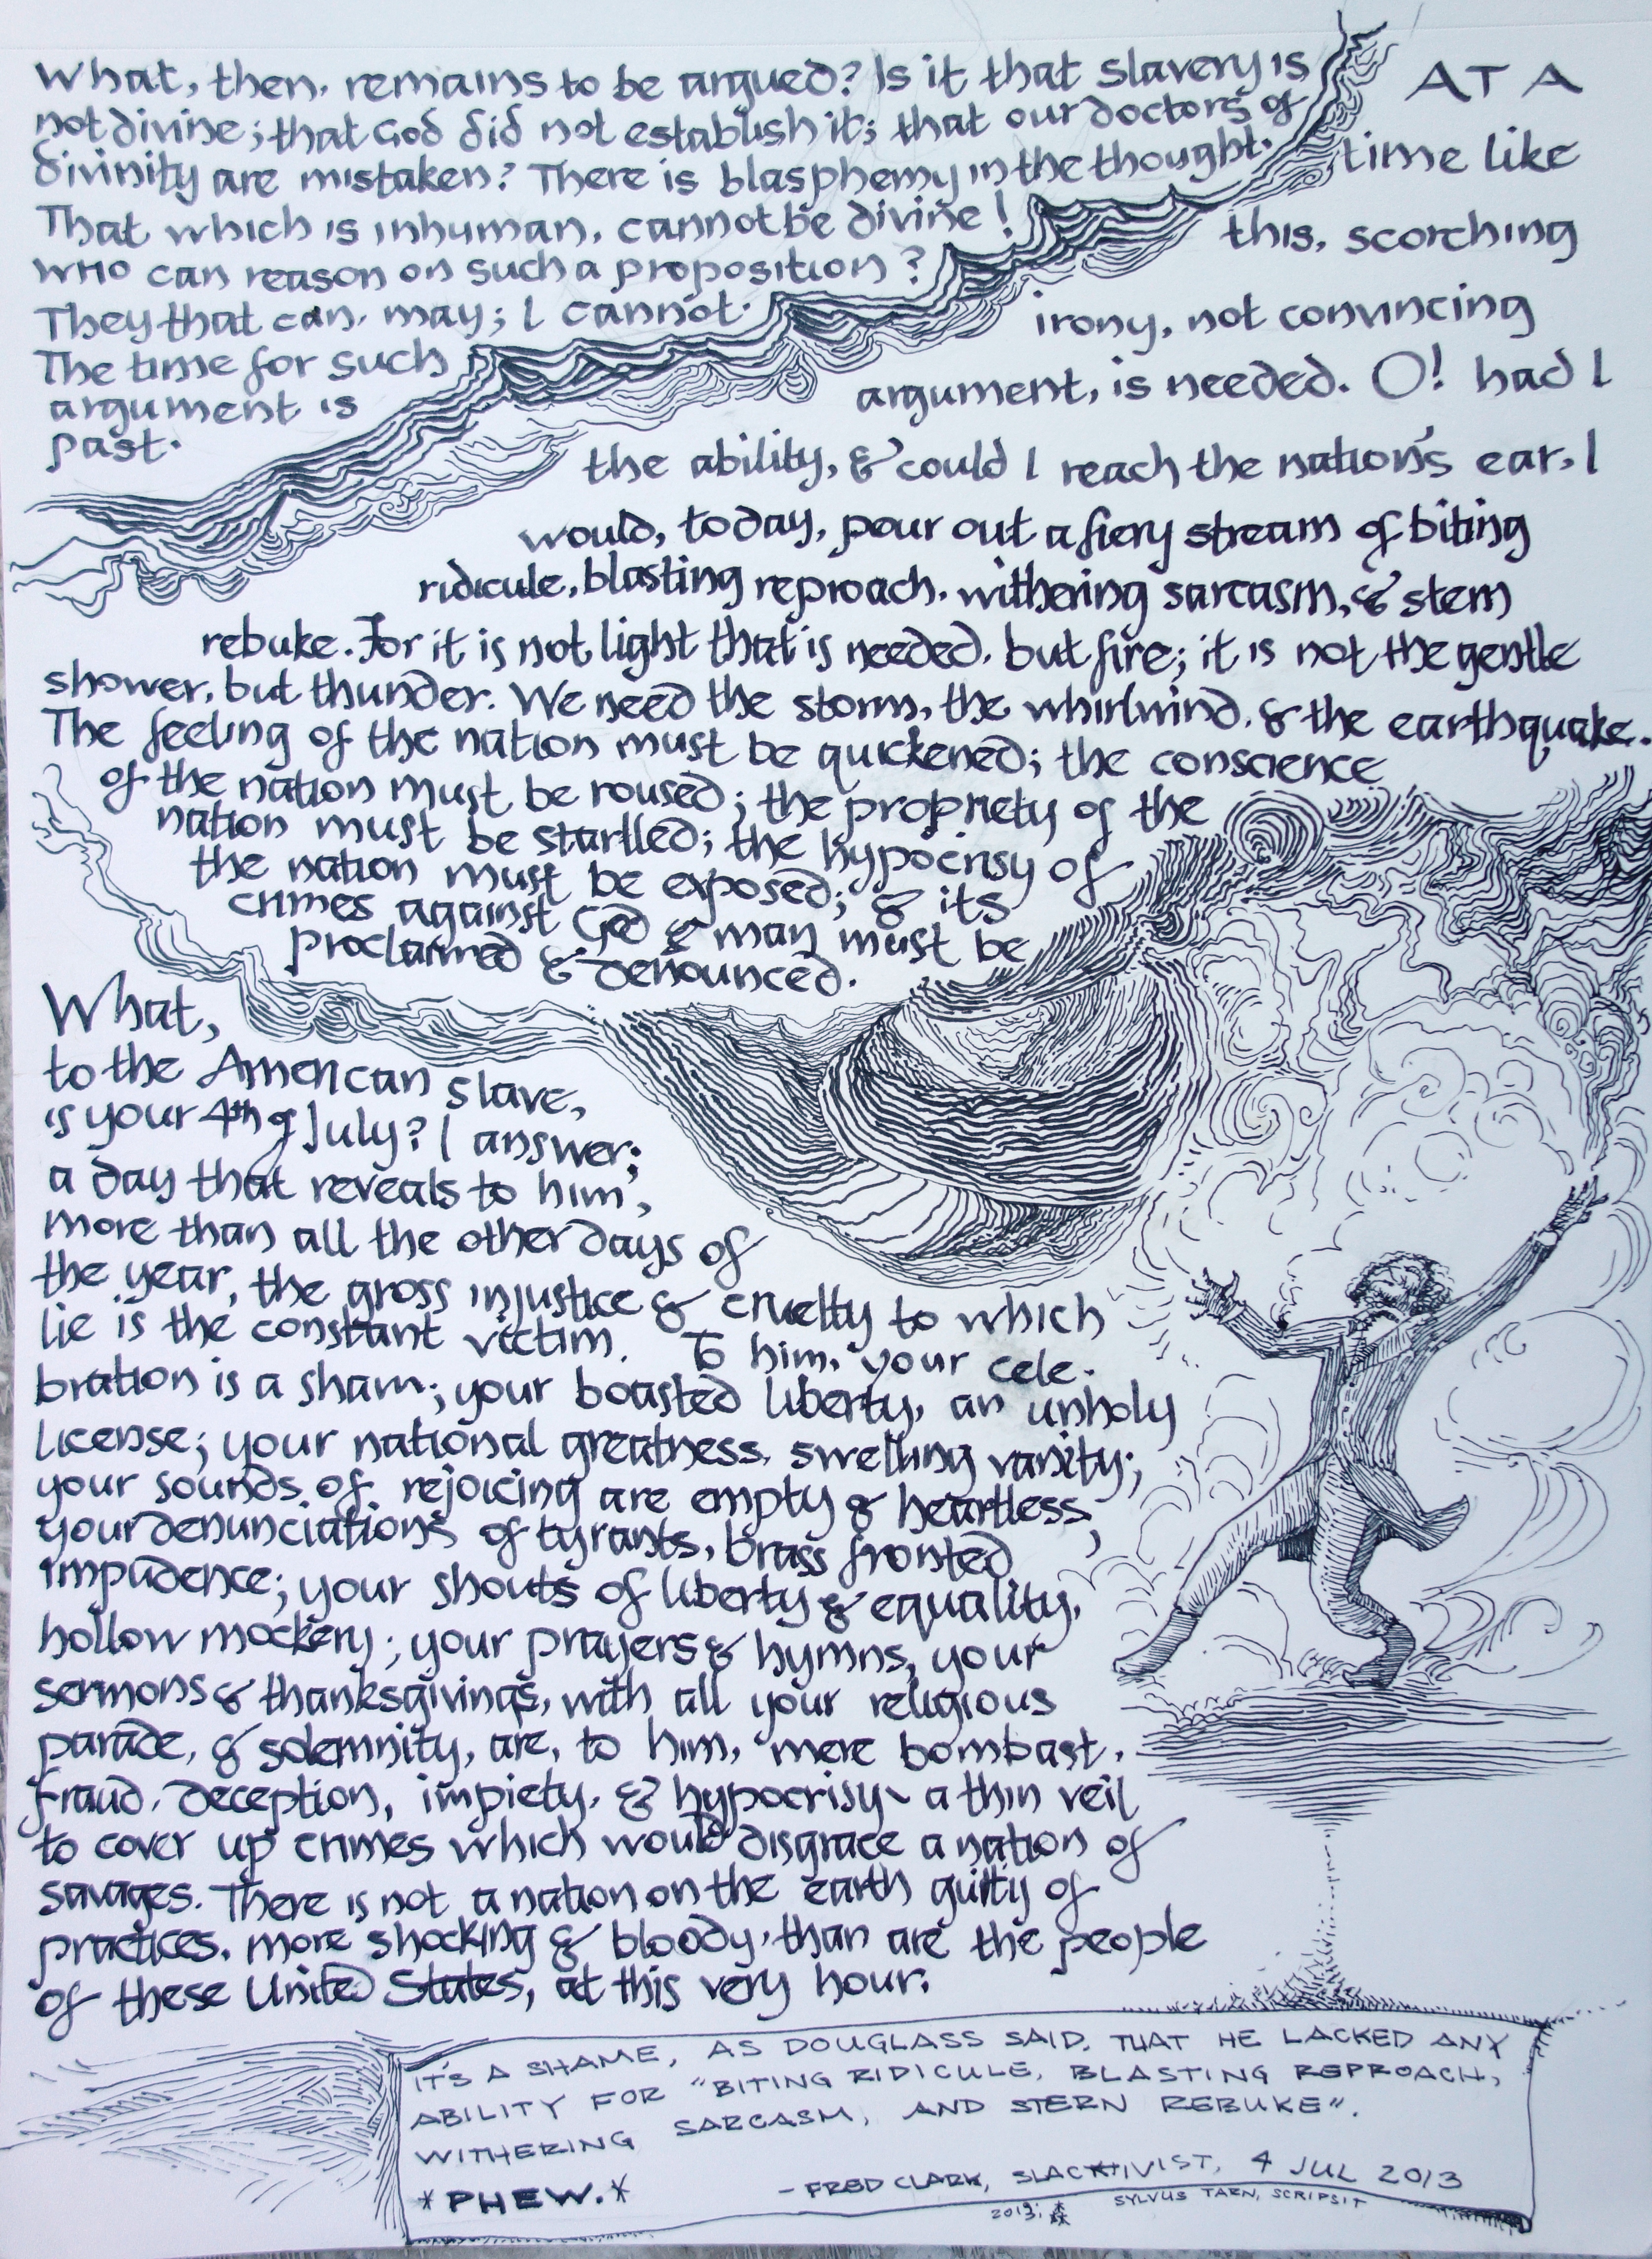 What, then, remains to be argued? Is it that slavery is
not divine; that God did not establish it; that our doctors of
divinity are mistaken? There is blasphemy in the thought.
That which is inhuman, cannot be divine!
who can reason on such a proposition?
They that can, may; I cannot.
The time for such
argument is
past.
AT A
time like
this, scorching
irony, not convincing
argument, is needed. O! had I
the ability, & could I reach the nation's ear, I
would, today, pour out a fiery stream of biting
ridicule, blasting reproach, withering sarcasm, & stern
rebuke. For it is not light that is needed, but fire; it is not the gentle
shower, but thunder. We need the storm, the whirlwind, & the earthquake.
The feeling of the nation must be quickened; the conscience
of the nation must be roused; the propriety of the
nation must be startled; the hypocrisy of
the nation must be exposed; & its
crimes against God & man must be
proclaimed & denounced.
What,
to the American slave,
is your 4th of July? I answer;
a day that reveals to him,
more than all the other days of
the year, the gross injustice & cruelty to which
he is the constant victim. To him, your cele-
bration is a sham; your boasted liberty, an unholy
license; your national greatness, swelling vanity;
your sounds of rejoicing are empty & heartless,
your denunciations of tyrants, brass fronted
impudence; your shouts of liberty & equality,
hollow mockery; your prayers & hymns, your
sermons & thanksgivings, with all your religious
parade, & solemnity, are, to him, mere bombast,
fraud, deception, impiety, & hypocrisy~ a thin veil
to cover up crimes which would disgrace a nation of
savages. There is not a nation on the earth guilty of
practices, more shocking & bloody, than are the people
of these United States, at this very hour.
IT'S A SHAME, AS DOUGLASS SAID, THAT HE LACKED ANY
ABILITY FOR "BITING RIDICULE, BLASTING REPROACH,
WITHERING SARCASM, AND STERN REBUKE".
*PHEW.*
- FRED CLARK, SLACKTIVIST, 4 JUL 2013
2013; 森 SYLVUS TARN, SCRIPSIT